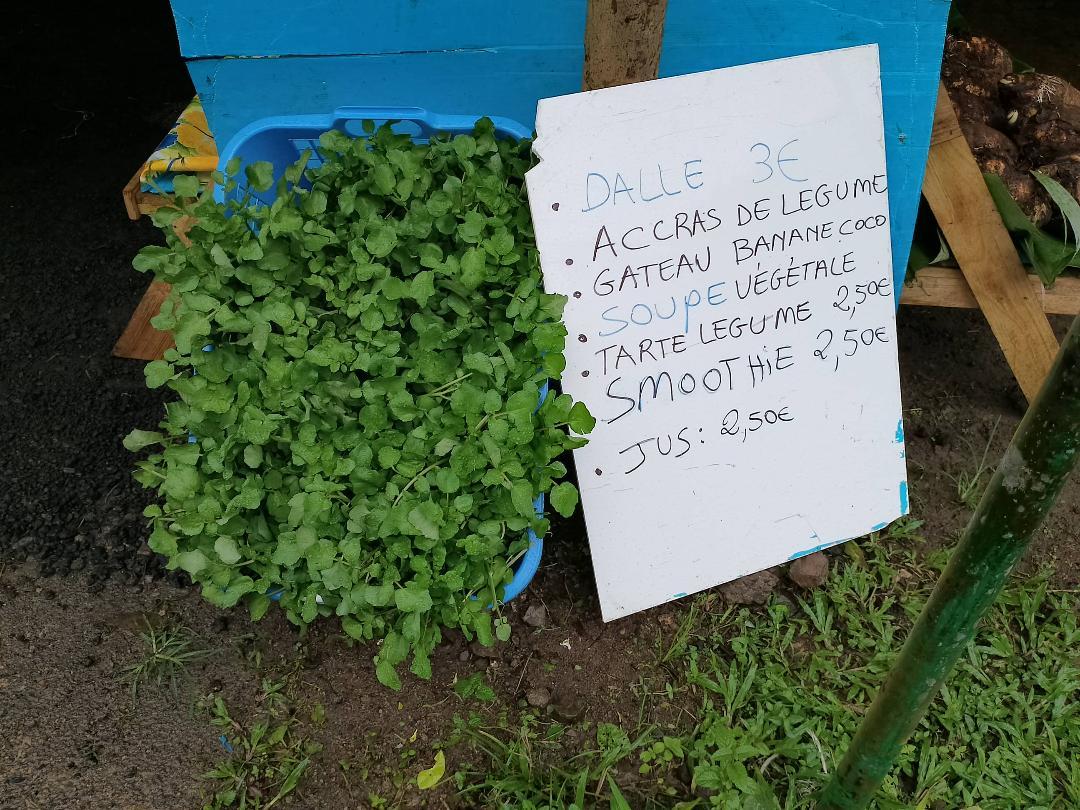 • DALLE 3€
• ACCRAS DE LEGUME
• GATEAU BANANE COCO
• SOUPE VÉGÉTALE
• TARTE LEGUME 2,50€
SMOOTHIE 2,50€
• JUS: 2,50€